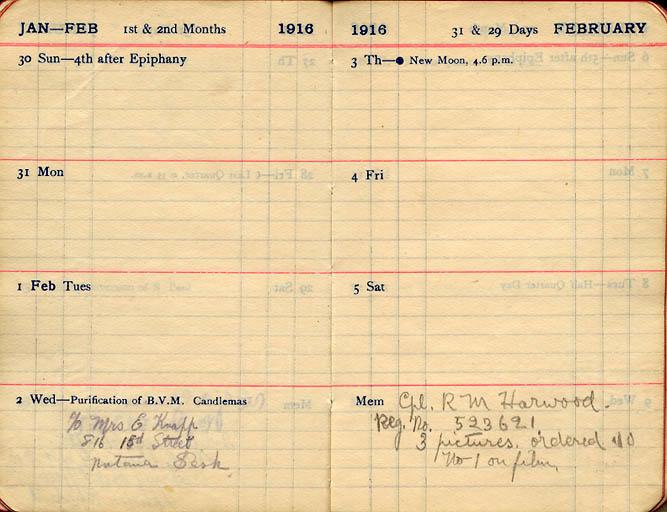 JAN—FEB 1st & 2nd Months 1916
30 Sun—4th after Epiphany
31 Mon
1 Feb Tues
2 Wed—Purification of B.V.M. Candlemas
℅ Mrs E Knapp
816 15d Street
Sask
1916 31 & 29 Days FEBRUARY
3 Th—● New Moon, 4.6 p.m.
4 Fri
5 Sat
Mem Cpl. R M Harwood.
Reg. No. 523621
3 pictures. ordered
No 1 on film